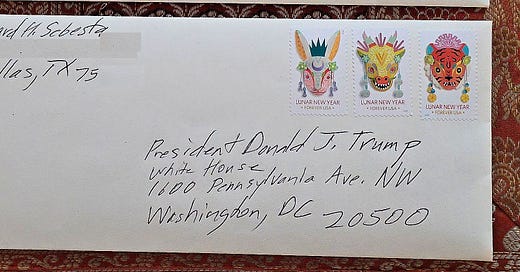 ard H. Sebesta
llas, TX 75
LUNAR NEW YEAR
FOREVER USA
LUNAR NEW YEAR
FOREVER USA
LUNAR NEW YEAR
FOREVER USA
President Donald J. Trump
White House
1600 Pennsylvania Ave. NW
Washington, DC 20500